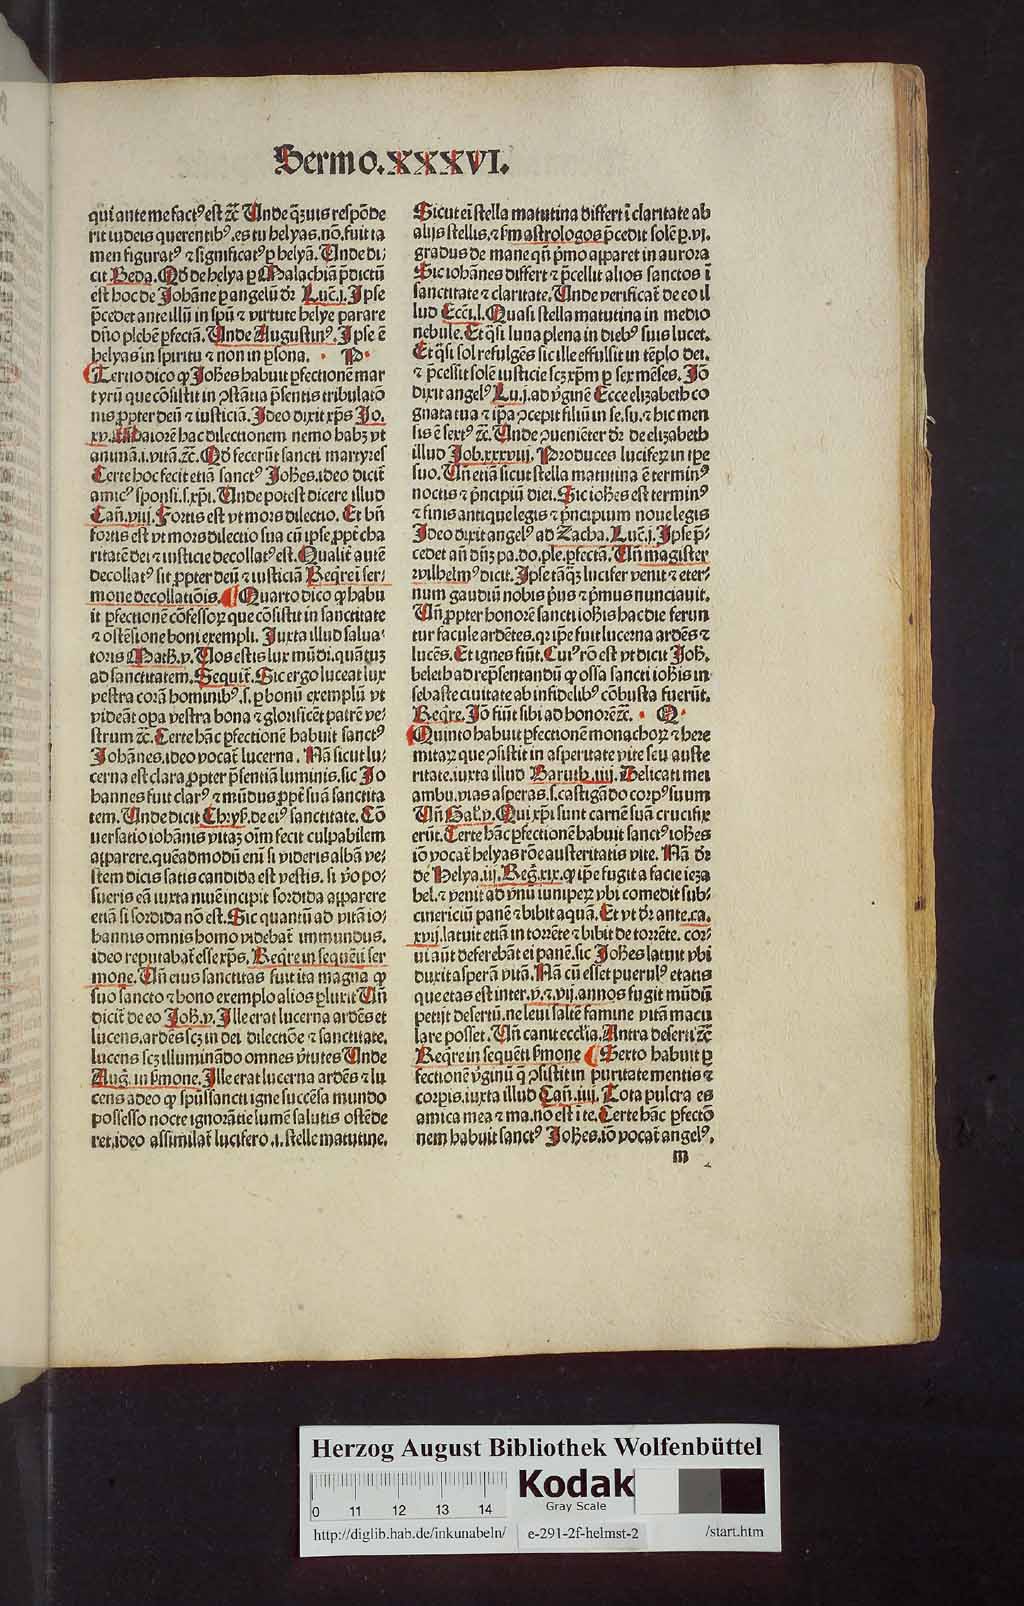 Sermo.XXXVI.
qui ante me factꝰ est ⁊c̄ Unde q̄zuis respōde
rit iudeis querentibꝰ.es tu helyas.nō.fuit ta
men figuratꝰ ⁊ significatꝰ ꝑ helyā.Unde di⸗
cit Beda.Qd̄ de helya ꝑ Malachiā p̄dictū
est hoc de Johāne ꝑ angelū dr̄ Luc̄.j.Ipse
p̄cedet ante illū in spū ⁊ virtute helye parare
dn̄o plebē ꝑfectā.Unde Augustinꝰ.Ipse ē
helyas in spiritu ⁊ non in ꝑsona. P
Tertio dico ꝙ Joh̄es habuit ꝑfectionē mar
tyrū que cōsistit in ꝯstātia p̄sentis tribulatō
nis ꝓpter deū ⁊ iusticiā.Ideo dixit xp̄s Jo.
xv.Maiorē hac dilectionem nemo habꝫ vt
animā.i.vitā.⁊c̄.Qd̄ fecerūt sancti martyres
Certe hoc fecit etiā sanctꝰ Joh̄es.ideo dicit̄
amicꝰ sponsi.s.xp̄i.Unde potest dicere illud
Can̄.viij.Fortis est vt mors dilectio.Et bn̄
fortis est vt mors dilectio sua cū ipse ꝓpt̄ cha
ritatē dei ⁊ iusticie decollatꝰ est.Qualit̄ autē
decollatꝰ sit ꝓpter deū ⁊ iusticiā Req̄re ī ser⸗
mone decollatiōis.Quarto dico ꝙ habu
it ꝑfectionē cōfessoꝝ que cōsistit in sanctitate
⁊ ostēsione boni exempli.Iuxta illud salua⸗
toris Math.v.Uos estis lux mūdi.quātuꝫ
ad sanctitatem.Sequit̄.Sic ergo luceat lux
vestra corā hominibꝰ.s.ꝑ bonū exemplū vt
videāt oꝑa vestra bona ⁊ glorificēt patrē ve⸗
strum ⁊c̄.Certe hāc ꝑfectionē habuit sanctꝰ
Johānes.ideo vocat̄ lucerna.Nā sicut lu⸗
cerna est clara ꝓpter p̄sentiā luminis.sic Jo
hannes fuit clarꝰ ⁊ mūdus ꝓpt̄ suā sanctita
tem.Unde dicit Chryſ.de eiꝰ sanctitate.Cō
uersatio iohānis vitaꝫ oīm fecit culpabilem
apparere.quēadmodū eni si videris albā ve⸗
stem dicis satis candida est vestis.si vo po⸗
sueris eā iuxta niuē incipit sordida apparere
etiā si sordida nō est.Sic quantū ad vitā io⸗
hannis omnis homo videbat̄ immundus.
ideo reputabat̄ esse xp̄s.Req̄re in sequēti ser
mone.Un̄ eius sanctitas fuit ita magna ꝙ
suo sancto ⁊ bono exemplo alios ꝑluxit Un̄
dicit̄ de eo Joh̄.v.Ille erat lucerna ardēs et
lucens.ardēs scꝫ in dei dilectiōe ⁊ sanctitate.
lucens scꝫ illuminādo omnes v̄tutes Unde
Aug̃ in s̄mone.Ille erat lucerna ardēs ⁊ lu
cens adeo ꝙ spūssancti igne succēsa mundo
possesso nocte ignorātie lumē salutis ostēde
ret.ideo assimilat̄ lucifero.i.stelle matutine.
Sicut ei stella matutina differt ī claritate ab
alijs stellis.⁊ s̄m astrologos p̄cedit solē ꝑ.vi.
gradus de mane qn̄ p̄mo apparet in aurora
Sic iohānes differt ⁊ p̄cellit alios sanctos ī
sanctitate ⁊ claritate.Unde verificat̄ de eo il
lud Ecc̄i.l.Quasi stella matutina in medio
nebule.Et q̄si luna plena in diebꝰ suis lucet.
Et q̄si sol refulgēs sic ille effulsit in tēplo dei.
⁊ p̄cessit solē iusticie scꝫ xp̄m ꝑ sex mēses.Jō
dixit angelꝰ Lu.j.ad v̄ginē Ecce elizabeth co
gnata tua ⁊ ip̄a ꝯcepit filiū in se.su.⁊ hic men
sis ē sextꝰ ⁊c̄.Unde ꝯueniēter dr̄ de elizabeth
illud Job.xxxviij.Produces luciferꝝ in tpe
suo.Un̄ etiā sicut stella matutina ē terminꝰ
noctis ⁊ p̄ncipiū diei.Sic ioh̄es est terminꝰ
⁊ finis antique legis ⁊ p̄ncipium noue legis
Ideo dixit angelꝰ ad Zacha.Luc̄.j.Ipse p̄⸗
cedet an̄ dn̄ꝫ pa.do.ple.ꝑfectā.Un̄ magister
wilhelmꝰ dicit.Ipse tāq̄ꝫ lucifer venit ⁊ eter⸗
num gaudiū nobis p̄us ⁊ p̄mus nunciauit.
Un̄ ꝓpter honorē sancti ioh̄is hac die ferun
tur facule ardētes.qꝛ ip̄e fuit lucerna ardēs ⁊
lucēs.Et ignes fiūt.Cuiꝰ rō est vt dicit Joh̄.
beleth ad rep̄sentandū ꝙ ossa sancti ioh̄is in
sebaste ciuitate ab infidelibꝰ cōbusta fuerūt.
Req̄re.Jō fiūt sibi ad honorē ⁊c̄. Q
Quinto habuit ꝑfectionē monachoꝝ ⁊ here
mitaꝝ que ꝯsistit in asperitate vite seu auste
ritate.iuxta illud Baruth.iiij.Delicati mei
ambu.vias asperas.s.castigādo corpꝰ suum
Un̄ Gal̄.v.Qui xp̄i sunt carnē suā crucifix
erūt.Certe hāc ꝑfectionē habuit sanctꝰ ioh̄es
iō vocat̄ helyas rōe austeritatis vite.Nā dr̄
de Helya.iij.Reg̃.xix.ꝙ ip̄e fugit a facie ieza
bel.⁊ venit ad vnū iuniperꝝ vbi comedit sub⸗
cinericiū panē ⁊ bibit aquā.Et vt dr̄ ante.ca.
xvij.latuit etiā in torrēte ⁊ bibit de torrēte.cor⸗
ui aūt deferebāt ei panē.sic Joh̄es latuit vbi
duxit asperā vitā.Nā cū esset puerulꝰ etatis
que etas est inter.v.⁊.vij.annos fugit mūdū
petijt desertū.ne leui saltē famine vitā macu
lare posset.Un̄ canit eccl̄ia.Antra deserti ⁊c̄
Req̄re in sequēti s̄mone Sexto habuit ꝑ
fectionē v̄ginū q̄ ꝯsistit in puritate mentis ⁊
corꝑis.iuxta illud Can̄.iiij.Tota pulcra es
amica mea ⁊ ma.no est ī te.Certe hāc ꝑfectō
nem habuit sanctꝰ Joh̄es.iō vocat̄ angelꝰ.
m
Herzog August Bibliothek Wolfenbüttel
0 11 12 13 14
Kodak
Gray Scale
http://diglib.hab.de/inkunabeln/ e-291-2f-helmst-2 /start.htm